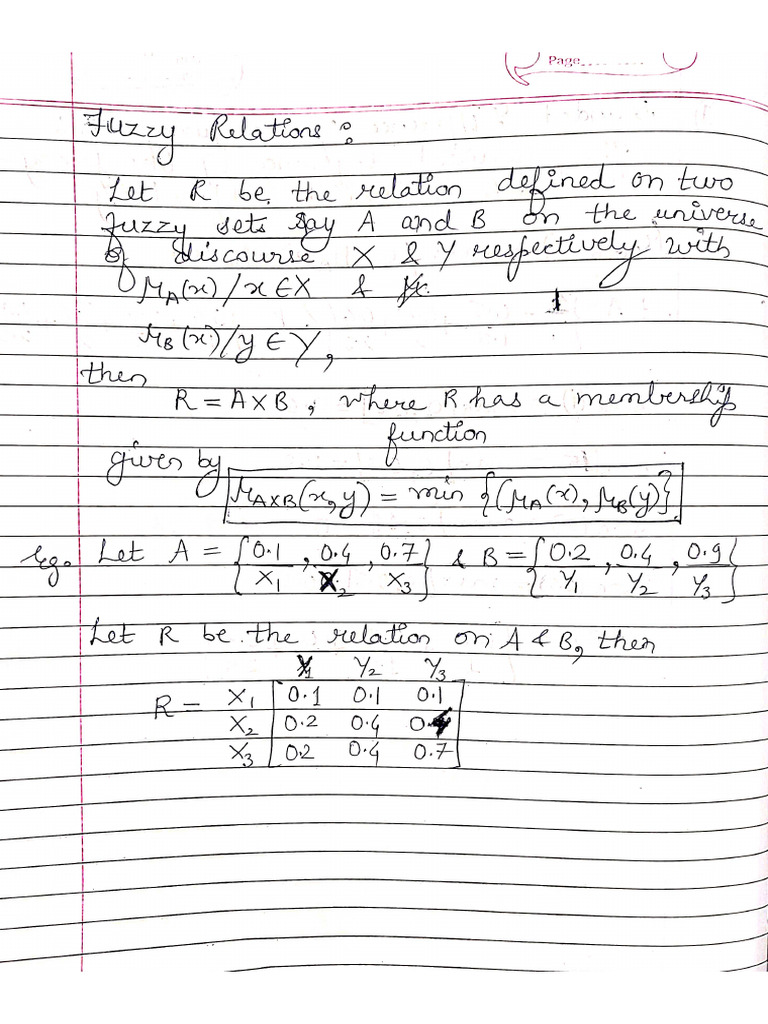 Page..........
Fuzzy Relations :
Let R be the relation defined on two
fuzzy sets say A and B on the universe
of discourse X & Y respectively with
μA(x)/x ∈ X &
μB(x)/y ∈ Y,
then
R = A×B , where R has a membership
function
given by
μA×B(x,y) = min {(μA(x), μB(y)}
Eg. Let A = {0.1/X1, 0.4/X2, 0.7/X3} & B = {0.2/Y1, 0.4/Y2, 0.9/Y3}
Let R be the relation on A & B, then
Y1 Y2 Y3
R = X1 0.1 0.1 0.1
X2 0.2 0.4 0.4
X3 0.2 0.4 0.7